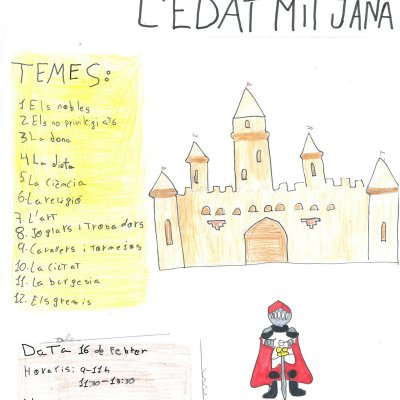 L'EDAT MITJANA
TEMES:
1. Els nobles
2. Els no privilegiats
3. La dona
4. La dieta
5. La ciència
6. La religió
7. L'art
8. Joglars i Trobadors
9. Cavallers i Tornejos
10. La Ciutat
11. La burgesia
12. Els gremis
DaTa 16 de Febrer
Horaris: 9-11h